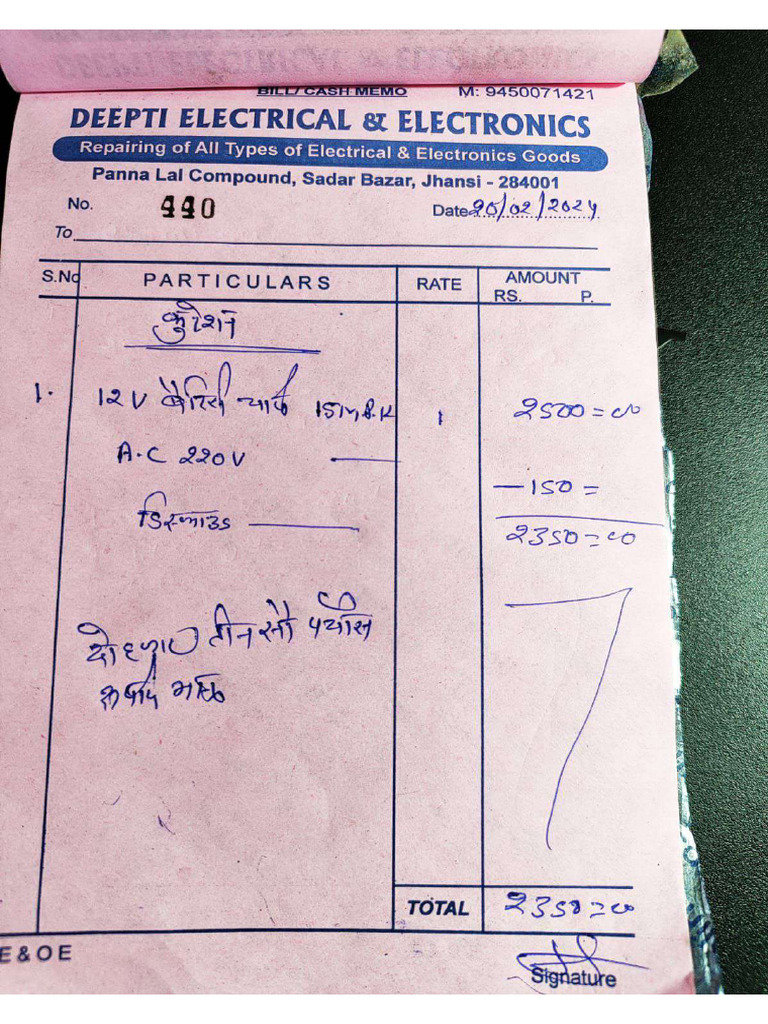 BILL/ CASH MEMO M: 9450071421
DEEPTI ELECTRICAL & ELECTRONICS
Repairing of All Types of Electrical & Electronics Goods
Panna Lal Compound, Sadar Bazar, Jhansi - 284001
No. 440 Date 20/02/2024
To
S.No PARTICULARS RATE AMOUNT
RS. P.
1. 12V 1 2500=00
A.C 220V
-150=
डिस्काउंट
2350=00
तीन सौ पचास
TOTAL 2350=00
E & O E
Signature